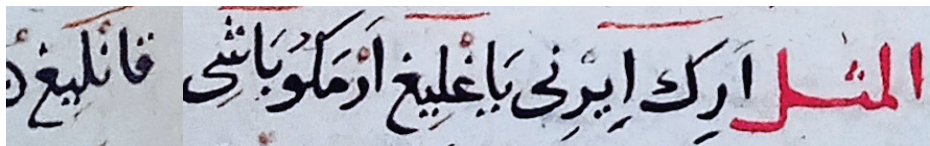 المثل اَرِك اِيرْنِى يَاغْلِيغ اَرْمَكُو بَاشِى قانْلِيغ